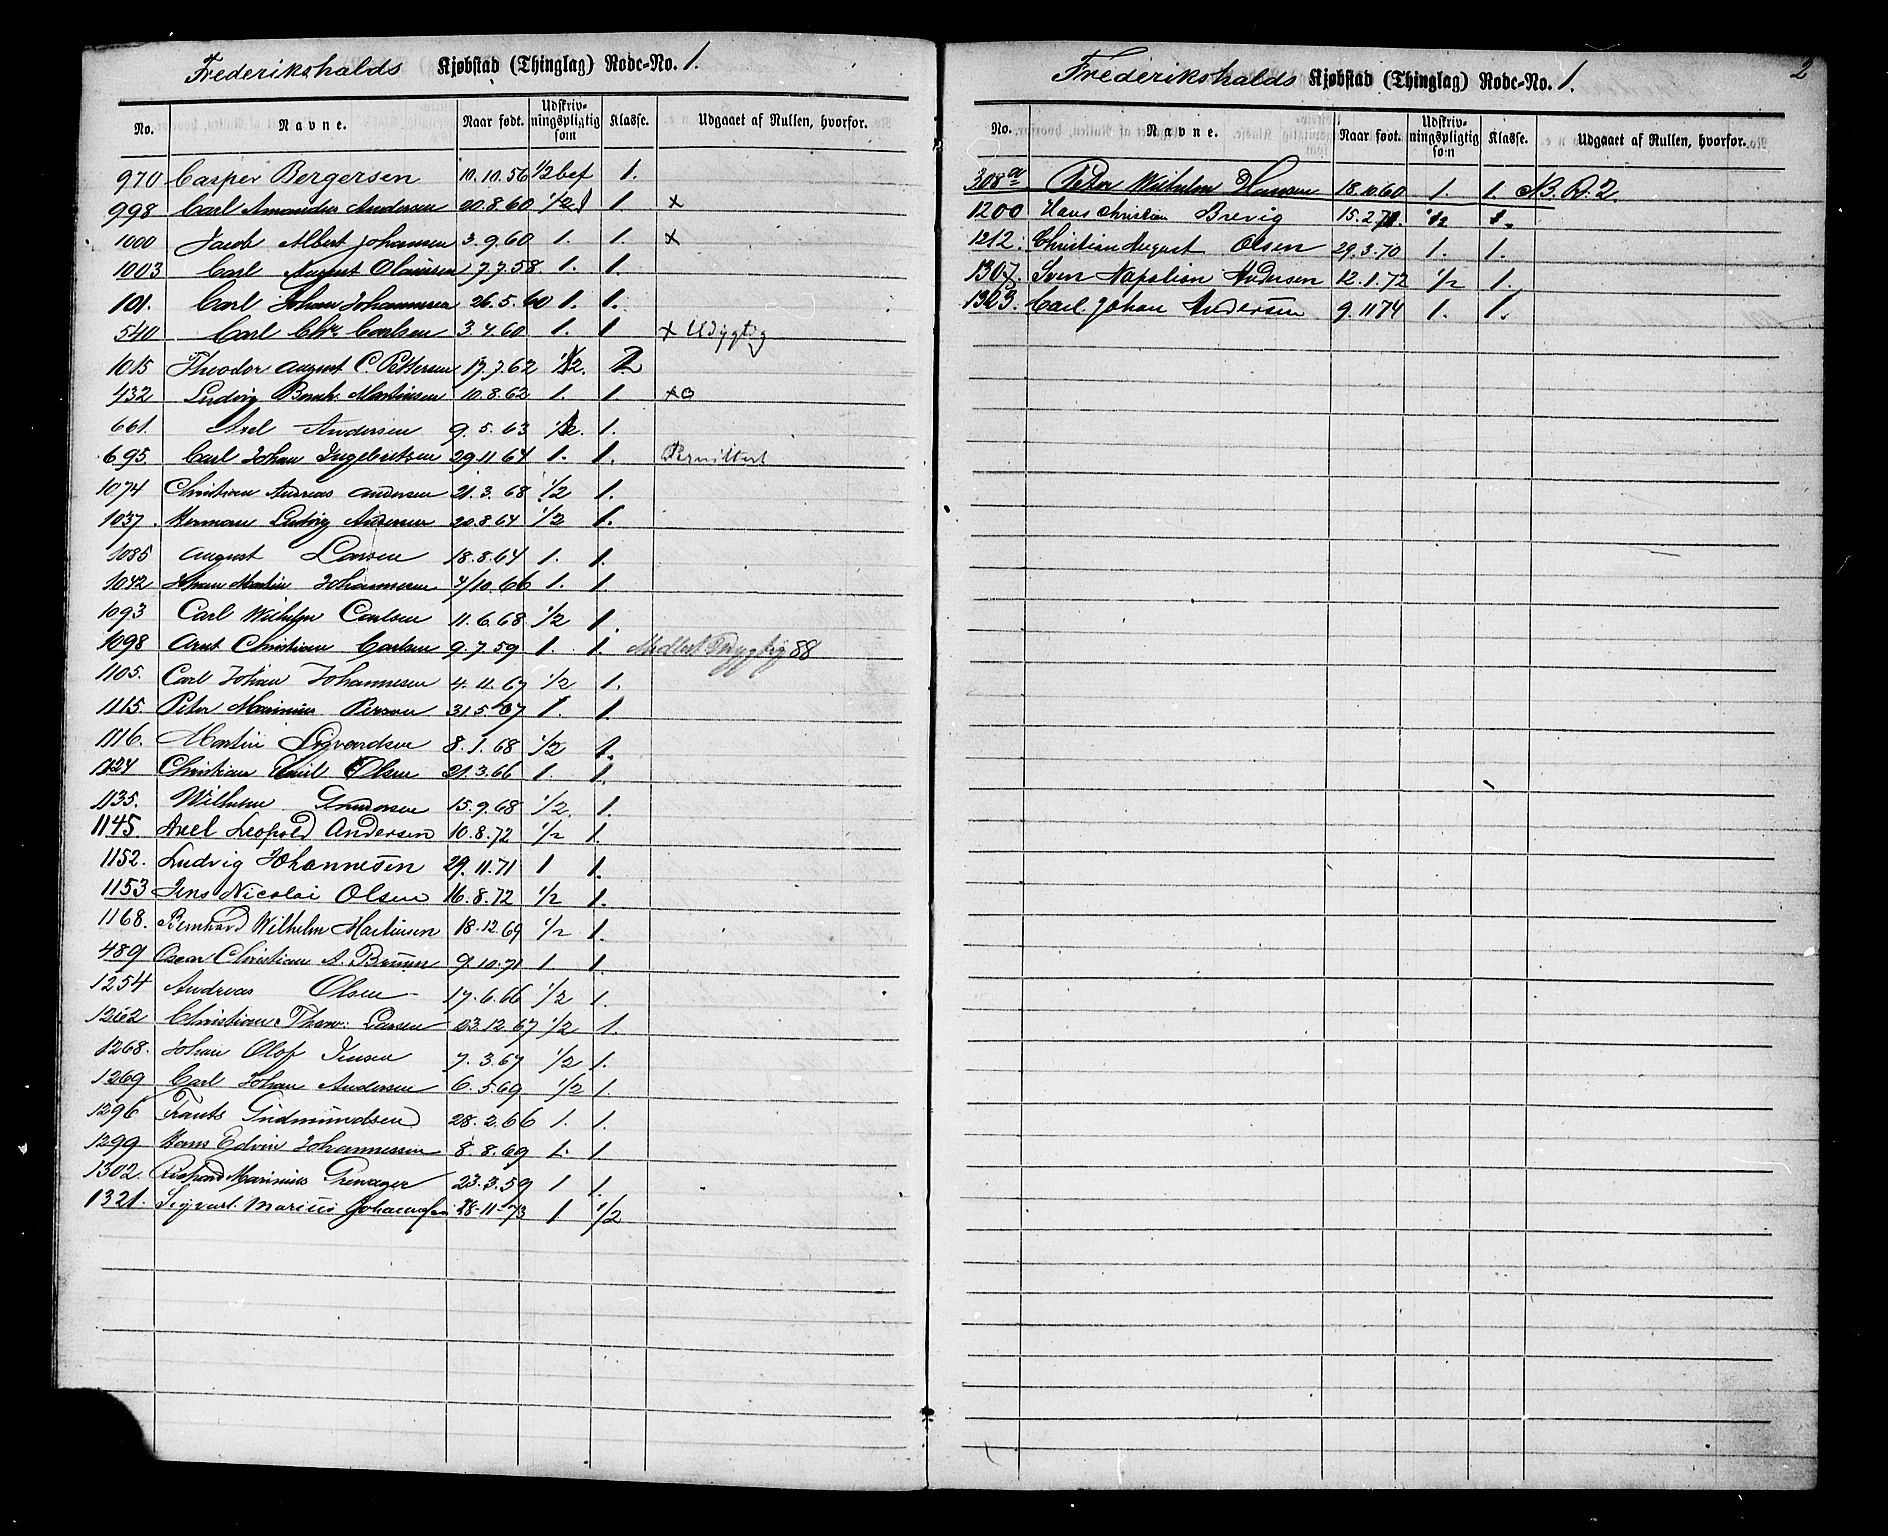 Frederikshalds Kjøbstad (Thinglag) Rode-No. 1.
No. Navne. Naar født. Udskrivningspligtig som Klasse. Udgaaet af Rullen, hvorfor.
970 Casper Bergersen 10.10.56 1/2 bef 1.
998 Carl Amandus Andersen 20.8.60 1/2 1 x
1000 Jacob Albert Johansen 3.9.60 1. 1. x
1003 Carl August Olausen 7.7.58 1. 1.
101. Carl Johan Johannesen 26.5.60 1. 1.
540 Carl Chr. Carlsen 3.4.60 1. 1 x Udygtig
1015 Theodor August C. Pettersen 17.7.62 1/2. 2
432 Ludvig Bernh. Martinsen 10.8.62 1. 1 xo
661. Axel Andersen 9.5.63 1/2. 1.
695. Carl Johan Ingebretsen 29.11.64 1. 1.
1074 Christian Andreas Andersen 21.3.68 1/2 1.
1037. Herman Ludvig Andersen 20.8.64 1/2 1.
1085 August Larsen 18.8.64 1. 1.
1042 Johan Martin Johannesen 4/10.66 1. 1.
1093 Carl Wilhelm Carlsen 11.6.68 1/2 1.
1098 Arnt Christian Carlsen 9.7.59 1. 1. 88
1105. Carl Johan Johannesen 4.11.67 1/2 1.
1115. Peter Marinius Person 31.5.67 1. 1.
1116. Martin Sigvardsen 8.1.68 1/2 1.
1124 Christian Emil Olsen 21.3.66 1. 1.
1135. Wilhelm Gundersen 15.9.68 1/2. 1.
1145 Axel Leopold Andersen 10.8.72 1/2 1.
1152. Ludvig Johannesen 29.11.71 1 1.
1153 Jens Nicolai Olsen 16.8.72 1/2 1.
1168. Bernhard Wilhelm Martinsen 18.12.69 1/2 1.
489 Oscar Christian A. Bruun 9.10.71 1 1.
1254 Andreas Olsen 17.6.66 1/2 1.
1262 Christian Thorv. Larsen 23.12.67 1/2 1.
1268. Johan Olof Jensen 7.3.67 1/2 1.
1269 Carl Johan Andersen 6.5.69 1/2 1.
1296 Frants Gudmundsen 28.2.66 1. 1.
1299 Hans Edvin Johannessen 8.8.69 1. 1
1302. Richard Marinius Grenager 23.3.59 1 1.
1321. Sigvart Marius Johannesen 28-11-73 1 1/2
2
Frederikshalds Kjøbstad (Thinglag) Rode-No. 1.
No. Navne. Naar født. Udskrivningspligtig som Klasse. Udgaaet af Rullen, hvorfor.
308 a Peter Wilhelm Hansen 18.10.60 1. 1. N3. R. 2.
1200 Hans Christian Brevig 15.2.71. 1/2 1.
1212. Christian August Olsen 29.3.70 1. 1.
1307. Sven Napolion Andersen 12.1.72 1/2 1.
1323. Carl Johan Andersen 9.11 74 1. 1.